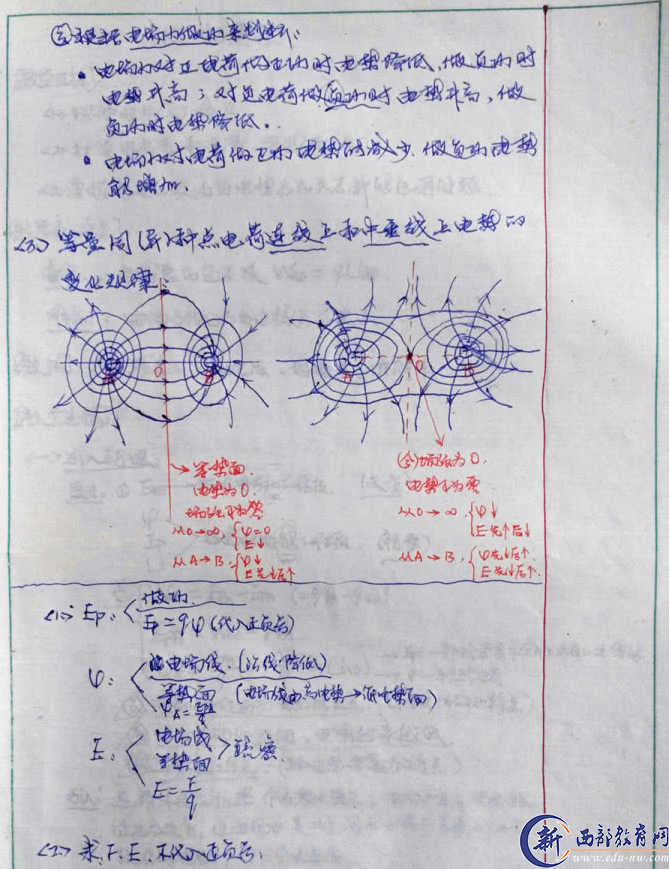 ③根据电场力做功来判断:
• 电场力对正电荷做正功时电势降低、做负功时
电势升高；对负电荷做负功时电势升高，做
负功时电势降低.
• 电场力对电荷做正功电势能减少、做负功电势
能增加.
<3> 等量同(异)种点电荷连线上和中垂线上电势的
变化规律:
A O B A O B
等势面
电势为0.
场强不为零
从0→∞ {φ=0 E↓
从A→B {φ↓ E先↓后↑
(合)场强为0.
电势不为零
从0→∞ {φ↓ E先↑后↓
从A→B {φ先↓后↑. E先↓后↑.
<1> Ep: 做功.
Ep=qφ(代入正负号)
φ: 电场线.(沿线降低)
等势面 (电场线由高电势→低电势面)
φA=
E: 电场线
等势面 疏密
E=F/q
<2> 求F、E、不代入正负号.
新 西部教育网
www.edu-nw.com